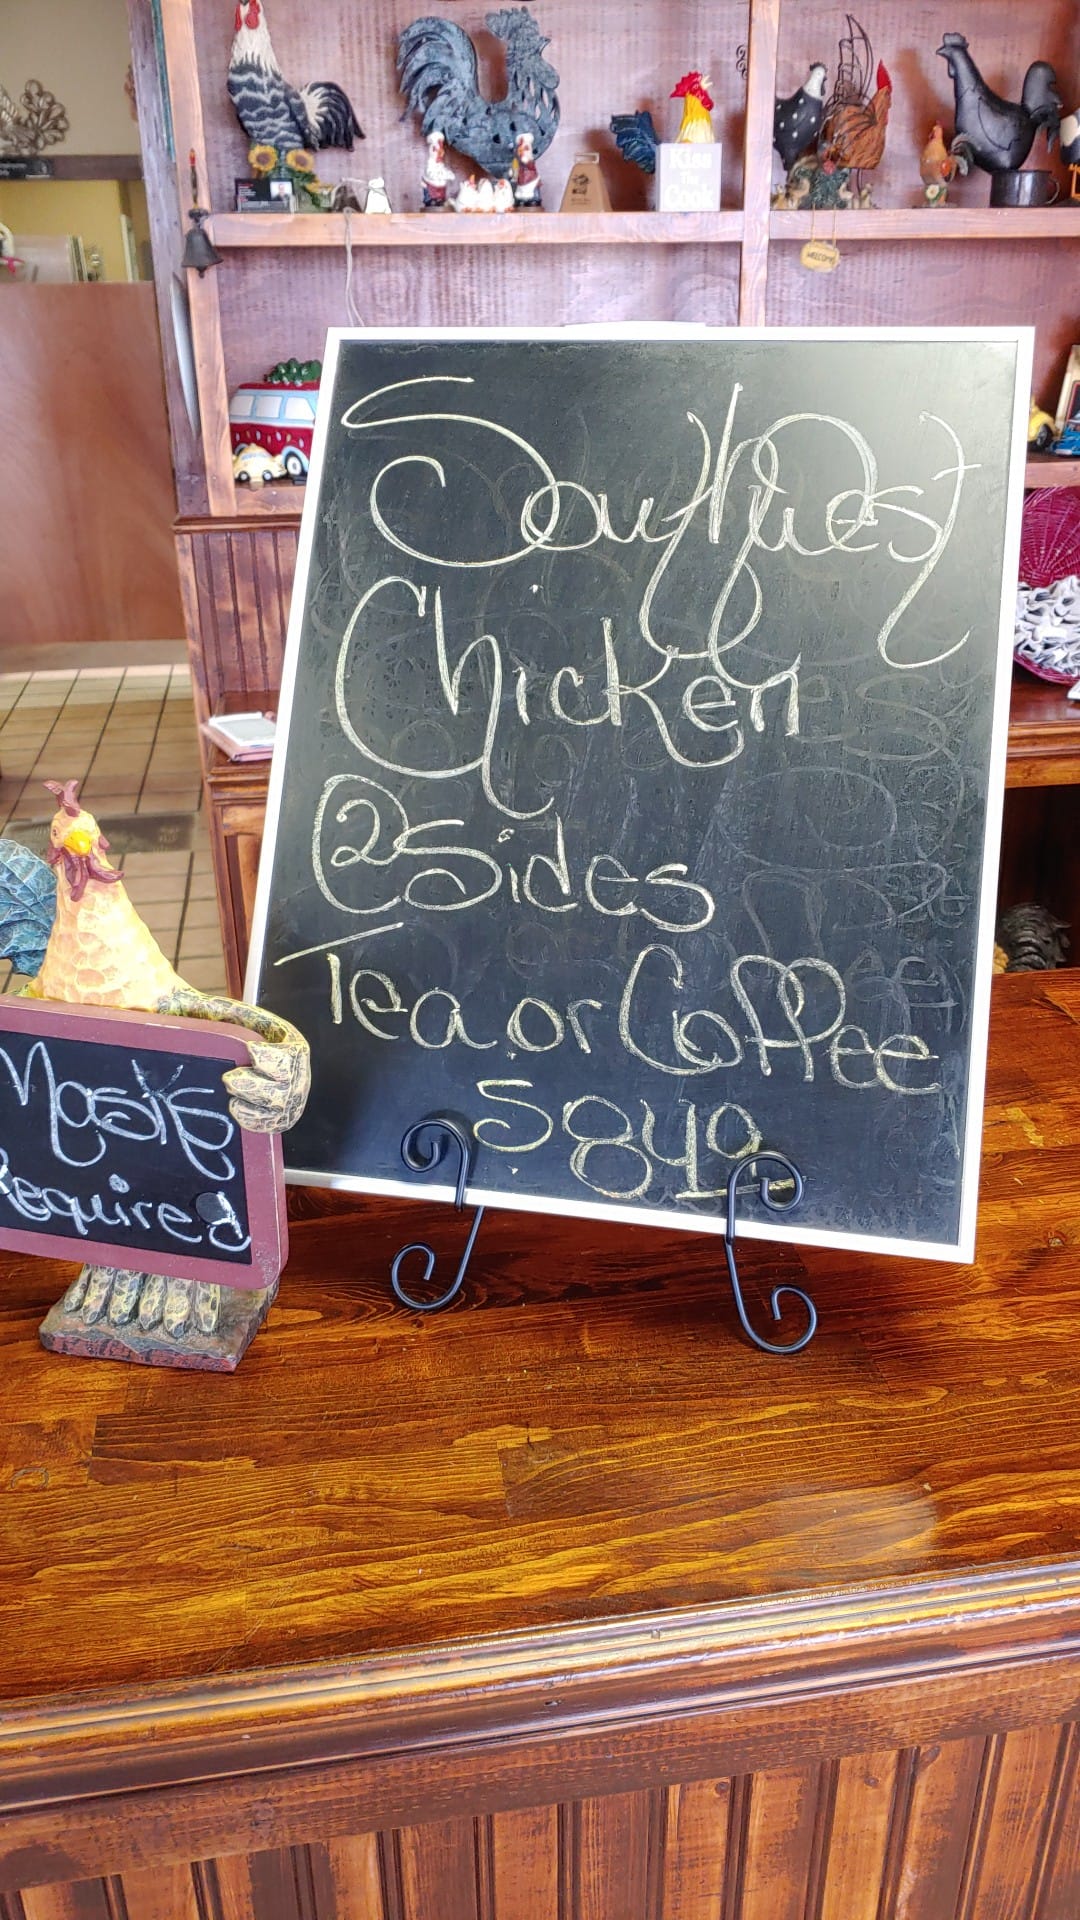 Kiss
The
Cook
WELCOME
Southwest
Chicken
2 Sides
Tea or Coffee
$849
Masks
Required